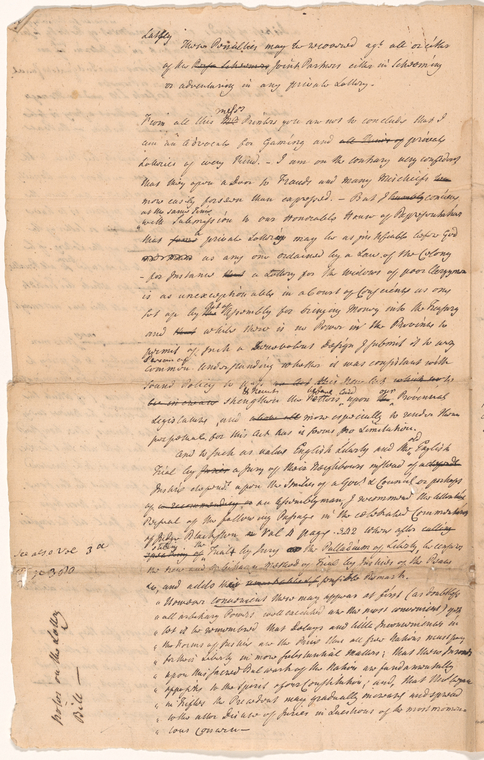 Lastly
These Penalties may be recovered agt. all or either
of the joint Partners either in Schemeing
or adventuring in any private Lottery.
From all this messrs Printers you are not to conclude that I
am an Advocate for Gaming and private
Lotteries of every kind. - I am on the contrary very confident
that they open a Door to Frauds and many Mischiefs
more easily foreseen than expressed. - But I conceive
at the same time
with submission to our Honorable House of Representatives
that private Lotteries may be as justifiable before God
as any one ordained by a Law of the Colony
- for Instance a Lottery for the Widows of poor Clergymen
is as unexceptionable in a Court of Conscience as one
set up by the Assembly for bringing Money into the Treasury
and while there is no Power in the Province to
permit of such a benevolent design I submit it to any
Person of
common Understanding whether it was consistant with
sound Policy to
strengthen the Fetters upon our Provincial
Legislature, and more especially to render them
perpetual for this Act has in force no Limitation.
And to such as value English Liberty and the English
Trial by a Jury of their Neighbours instead of
Justices dependt. upon the Smiles of a Govr. & Council or perhaps
of an Assemblyman, I recommend the attentive
Perusal of the following Passage in the celebrated Commentaries
of Judge Blackstone Vol 4 page 342 where after
calling the Trial by Jury the Palladium of Liberty he
Method of Trial by Justices of the Peace
&c, and adds this remark.
See also Vol 3d
page 380
" However convenient these may appear at first (as doubtless
" all arbitrary Powers, well executed are the most convenient) yet
" let it be remembered that Delays and little Inconveniences in
" the Forms of Justice are the Price that all free Nations must pay
" for their Liberty in more substantial Matters; that these Inroads
" upon this sacred Bulwark of the Nation are fundamentally
" opposite to the Spirit of our Constitution; and, that tho begun
" in Trifles the Precedent may gradually increase and spread
" to the utter Disuse of Juries in Questions of the most momen
" tous Concern -
Notes on the Lottery
Bill -